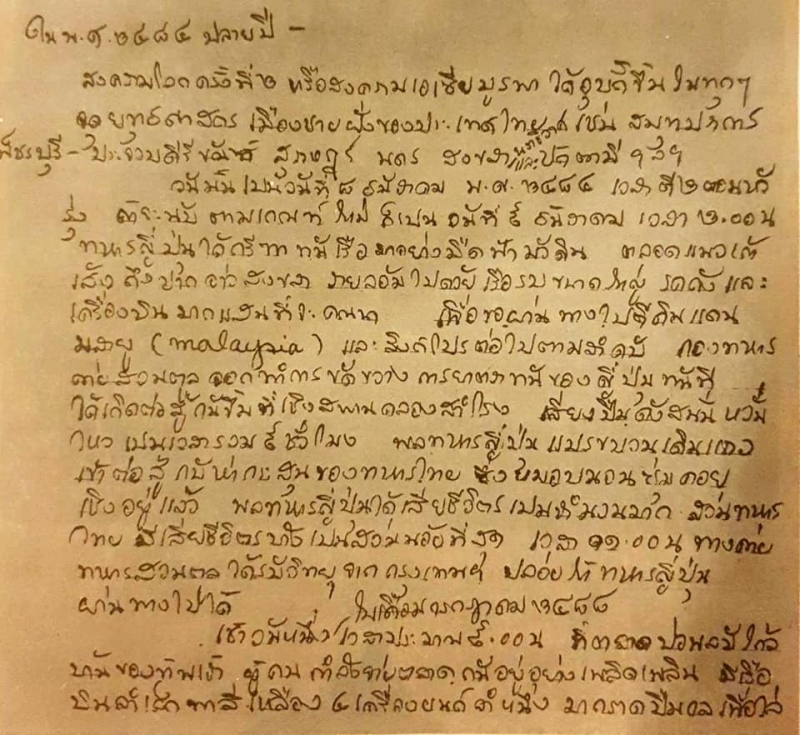 ใน พ.ศ. ๒๔๘๔ ปลายปี –
สงครามโลกครั้งที่ ๒ หรือสงครามเอเซียบูรพา ได้อุบัติขึ้น ในทุกๆ
จุดยุทธศาสตร เมืองชายฝั่งของประเทศไทย เช่น สมุทปราการ
เพ็ชรบุรี – ประจวบคีรีขันธ์ สุราษฎร์ นคร สงขลา และปัตตานี ฯลฯ
วันนั้นเป็นวันที่ ๘ ธันวาคม พ.ศ. ๒๔๘๔ เวลา ตี ๒ ตอนหัว
รุ่ง ถ้าจะนับตามเกณฑ์ใหม่ ก็เป็น วันที่ ๘ ธันวาคม เวลา ๒.๐๐ น
ทหารญี่ปุ่นได้กรีฑาทัพเรือมาอย่างมืดฟ้ามัวดิน ตลอดแนวเก้า
เส้ง ถึงปากอ่าวสงขลา รายล้อมไปด้วยเรือรบขนาดใหญ่ รถถังและ
เครื่องบินมากแสนที่จะคณนา เพื่อขอผ่านทางไปตีดินแดน
มลายู (malaysia) และสิงค์โปรต่อไปตามลำดับ กองทหาร
ค่ายสวนตูล ออกทำการขัดขวาง การยาตราทัพของญี่ปุ่นทันที
ได้เกิดต่อสู้กันขึ้นที่เชิงสพานคลองสำโรง เสียงปืนดังสนั่นหวั่น
ไหว เป็นเวลารวม ๙ ชั่วโมง พลทหารญี่ปุ่น แปรขบวนเดินแถว
เข้าต่อสู้กับห่ากระสุนของทหารไทย ซึ่งหมอบนอนซุ่มคอย
เชิงอยู่แล้ว พลทหารญี่ปุ่นได้เสียชีวิตรเป็นจำนวนมาก ส่วนทหาร
ไทย มีเสียชีวิตรบ้างเป็นส่วนน้อยที่สุด เวลา ๑๑.๐๐ น ทางค่าย
ทหารสวนตูล ได้รับวิทยุจากกรุงเทพฯ ปล่อยให้ทหารญี่ปุ่น
ผ่านทางไปได้ ในเดือนกรกฎาคม ๒๔๘๘
เช้าวันหนึ่ง เวลาประมาณ ๙.๐๐ น ที่ตลาด ใกล้
บ้านของข้าพเจ้า ผู้คนกำลังจ่ายตลาดกันอยู่อย่างเพลิดเพลิน มีเรือ
บินลำเล็กทาสีเหลือง ๔ เครื่องยนต์ลำหนึ่ง มากราดปืนกลเพื่อไล่